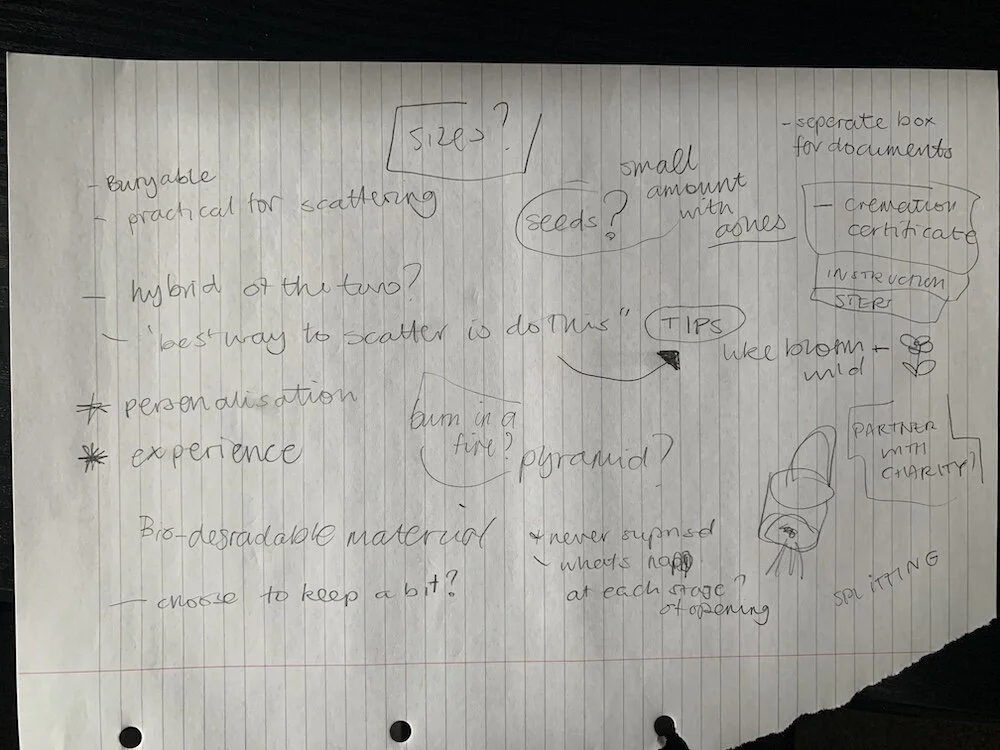 sizes?
- Buryable
- practical for scattering
- hybrid of the two?
- 'best way to scatter is do this"
TIPS
* personalisation
* experience
Bio-degradable material
- choose to keep a bit?
seeds?
small
amount
with
ashes
burn in a
fire?
pyramid?
never suprised
whats
at each stage?
of opening
- seperate box
for documents
- cremation
certificate
INSTRUCTION
STEPS
like bloom +
wild
PARTNER
WITH
CHARITY?
SPLITTING